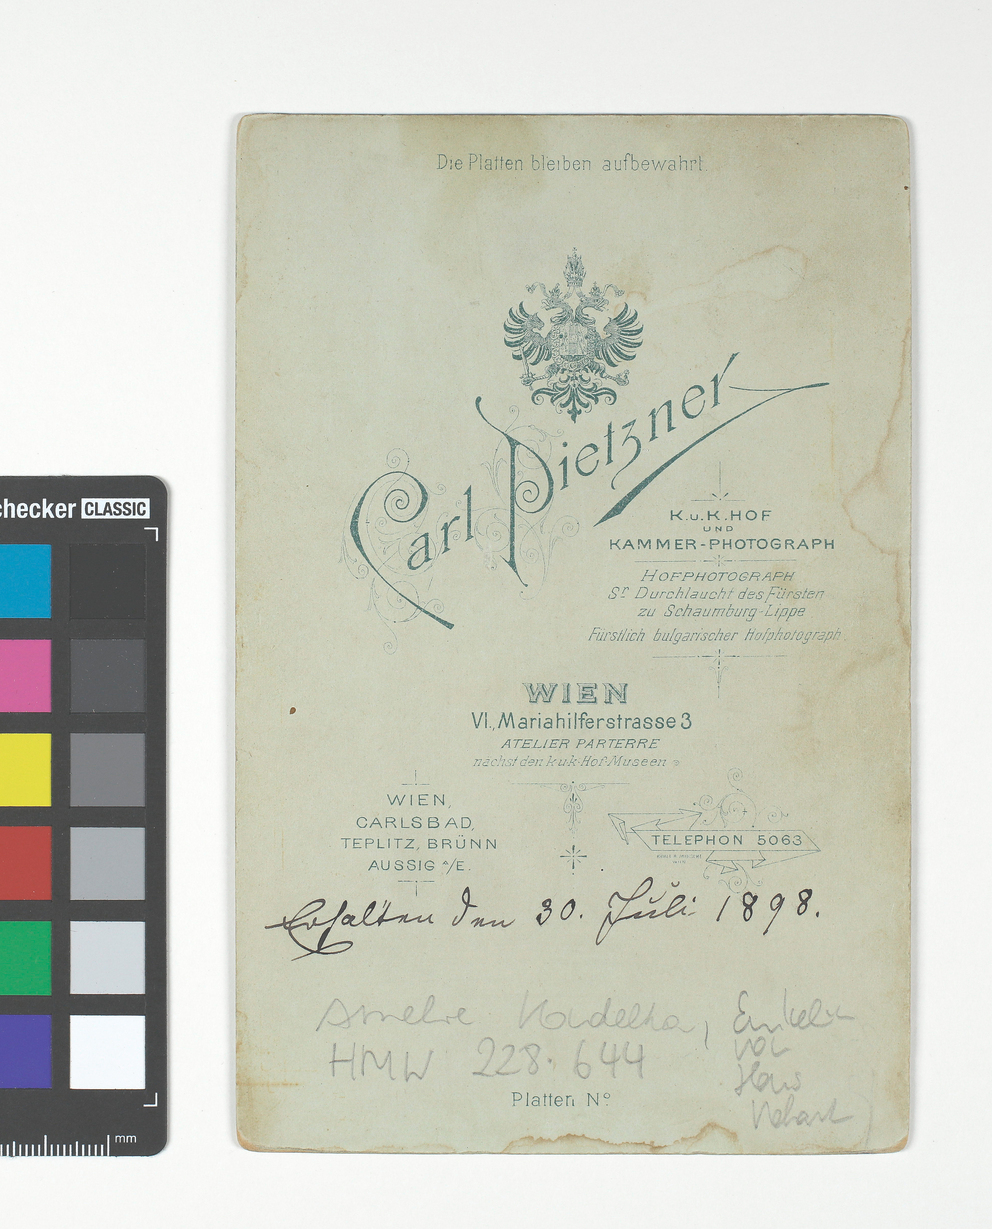 Die Platten bleiben aufbewahrt.
Carl Pietzner
K.u.K.HOF
UND
KAMMER-PHOTOGRAPH
HOFPHOTOGRAPH
Sr Durchlaucht des Fürsten
zu Schaumburg-Lippe
Fürstlich bulgarischer Hofphotograph
WIEN
VI., Mariahilferstrasse 3
ATELIER PARTERRE
nächst den k.u.k. Hof-Museen
WIEN,
CARLSBAD,
TEPLITZ, BRÜNN
AUSSIG A/E.
TELEPHON 5063
Erhalten den 30. Juli 1898.
Amelie, Enkelin
HMW 228.644 von
Hans
Platten No
checker CLASSIC
mm